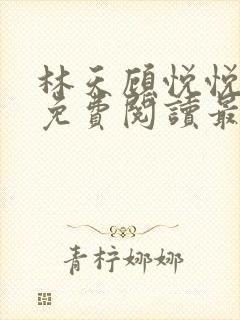 林天顾悦悦
免費閱讀最
青柠娜娜